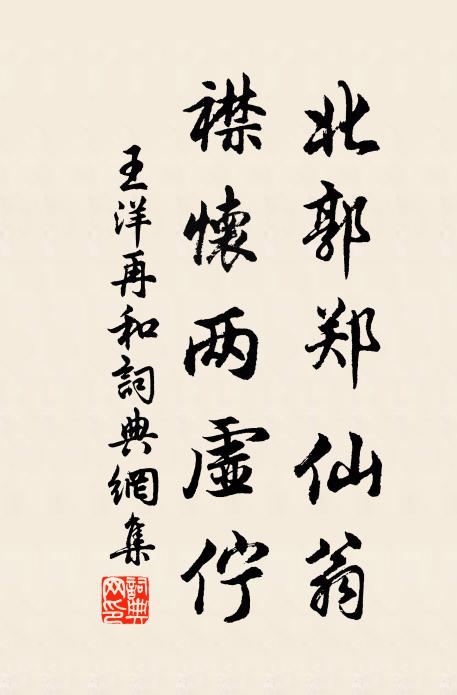 北郭郑仙翁
襟懷两虚佇
王洋再和詞典網集
詞典网印